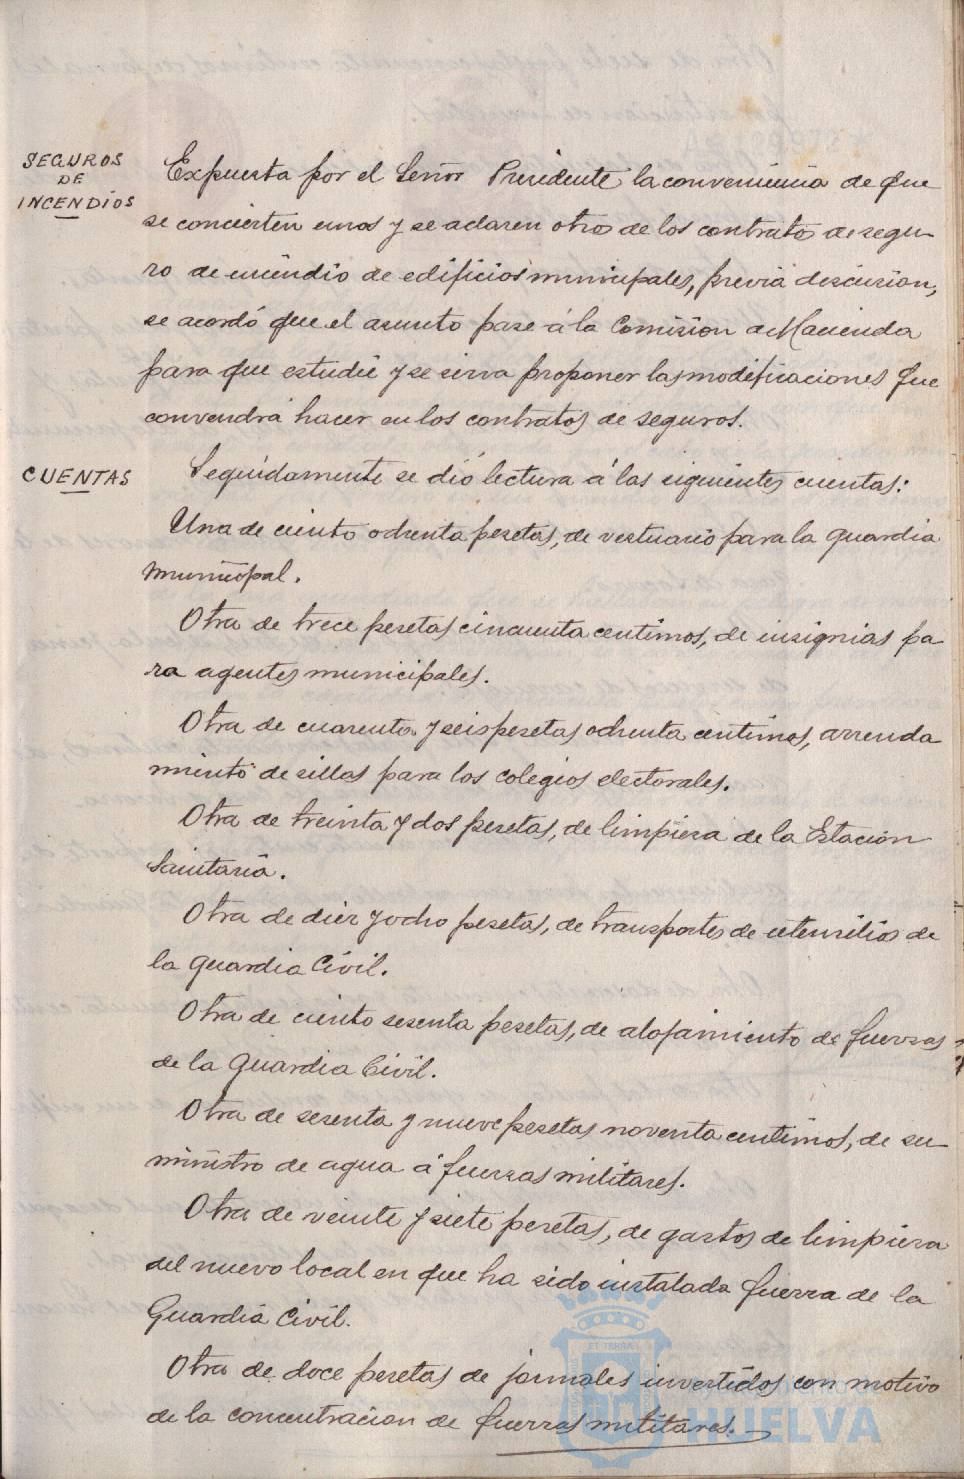 SEGUROS
DE
INCENDIOS
Expuesta por el Señor Presidente la conveniencia de que
se concierten unos y se aclaren otros de los contratos de segu-
ro de incendio de edificios municipales, previa discusion,
se acordó que el asunto pase á la Comision de Hacienda
para que estudie y se sirva proponer las modificaciones que
convendrá hacer en los contratos de seguros.
CUENTAS
Seguidamente se dió lectura á las siguientes cuentas:
Una de ciento ochenta pesetas, de vestuario para la guardia
municipal.
Otra de trece pesetas cincuenta centimos, de insignias pa-
ra agentes municipales.
Otra de cuarenta y seis pesetas ochenta centimos, arrenda
miento de sillas para los colegios electorales.
Otra de treinta y dos pesetas, de limpieza de la Estacion
Sanitaria.
Otra de diez y ocho pesetas, de transportes de utensilios de
la Guardia Civil.
Otra de ciento sesenta pesetas, de alojamiento de fuerzas
de la Guardia Civil.
Otra de sesenta y nueve pesetas noventa centimos, de su-
ministro de agua á fuerzas militares.
Otra de veinte y siete pesetas, de gastos de limpieza
del nuevo local en que ha sido instalada fuerza de la
Guardia Civil.
Otra de doce pesetas de jornales invertidos con motivo
de la concentracion de fuerzas militares.
HUELVA